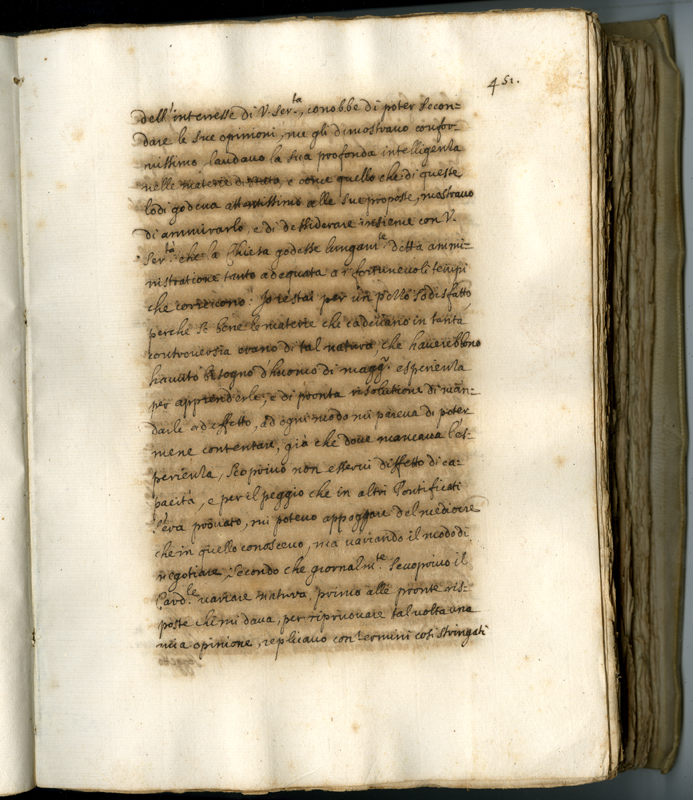 451.
dell'interesse di V. Ser.ta, conobbe di poter secon-
dare le sue opinioni, me gli dimostravo confor-
missimo, laudavo la sua profonda intelligenza
nelle materie di stato, e come quello che di queste
lodi godeva attentissimo alle sue proposte, mostravo
di ammirarlo, e di dessiderare insieme con V.
Ser.tà che la Chiesa godesse longam.te detta ammi-
nistratione tanto adequata a i fortunevoli tempi
che correvono: Io restai per un pezzo sodisfatto,
perche se bene le materie che cadevano in tanta
controversia erano di tal natura, che haverebbono
havuto bisogno d'huomo di magg.r esperienza
per apprenderle, e di pronta risolutione di man-
darle ad effetto, ad ogni modo mi pareva di poter
mene contentare, già che dove mancava l'es-
perienza, scoprivo non esservi diffetto di ca-
pacità, e per il peggio che in altri Pontificati
s'era provato, mi potevo appoggare del mediocre
che in quello conoscevo, ma variando il modo di
negotiare, secondo che giornalm.te scuoprivo il
Card.le variare natura, primo alle pronte ris-
poste che mi dava, per ripruovare tal volta una
mia opinione, replicavo con termini così stringati